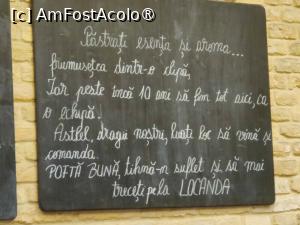 [c] AmFostAcolo®
Păstrați esența și aroma...
frumusețea dintr-o clipă,
Iar peste încă 10 ani să fim tot aici, ca
o echipă.
Astfel, dragii noștri, luați loc să vină și
comanda.
POFTĂ BUNĂ, tihnă-n suflet și să mai
treceți pe la LOCANDA